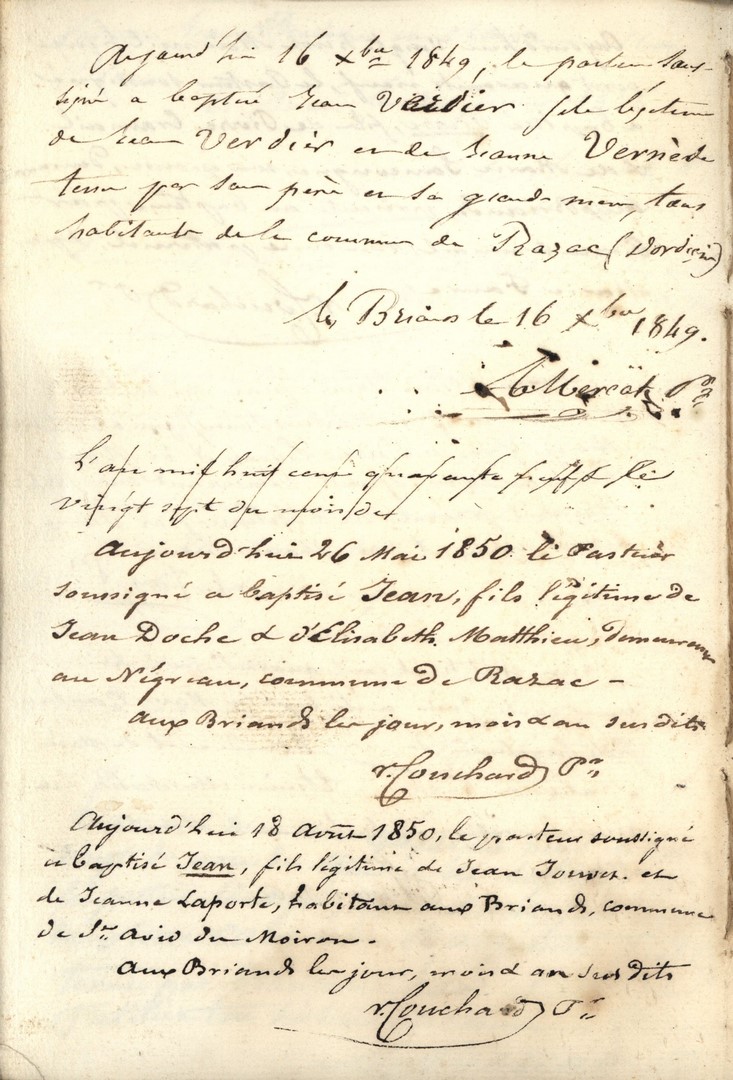 Aujourd'hui 16 Xbre 1849, le pasteur sous-
signé a baptisé Jean Verdier fils légitime
de Jean Verdier et de Jeanne Vernède
tenu par son père et sa grande mère, tous
habitants de la commune de Razac (Dordogne)
les Briands le 16 Xbre 1849.
Mercat Pr
L'an mil huit cent quarante neuf le
vingt sept du mois de
Aujourd'hui 26 Mai 1850 le Pasteur
soussigné a baptisé Jean, fils légitime de
Jean Doche & d'Elisabeth Matthieu, demeurant
au Négreau, commune de Razac -
aux Briands les jour, mois & an susdits
Couchard Pr
Aujourd'hui 18 août 1850, le pasteur soussigné
a baptisé Jean, fils légitime de Jean et
de Jeanne Laporte, habitant aux Briands, commune
de St. Avid du Moiron.
aux Briands les jour, mois & an susdits
Couchard Pr